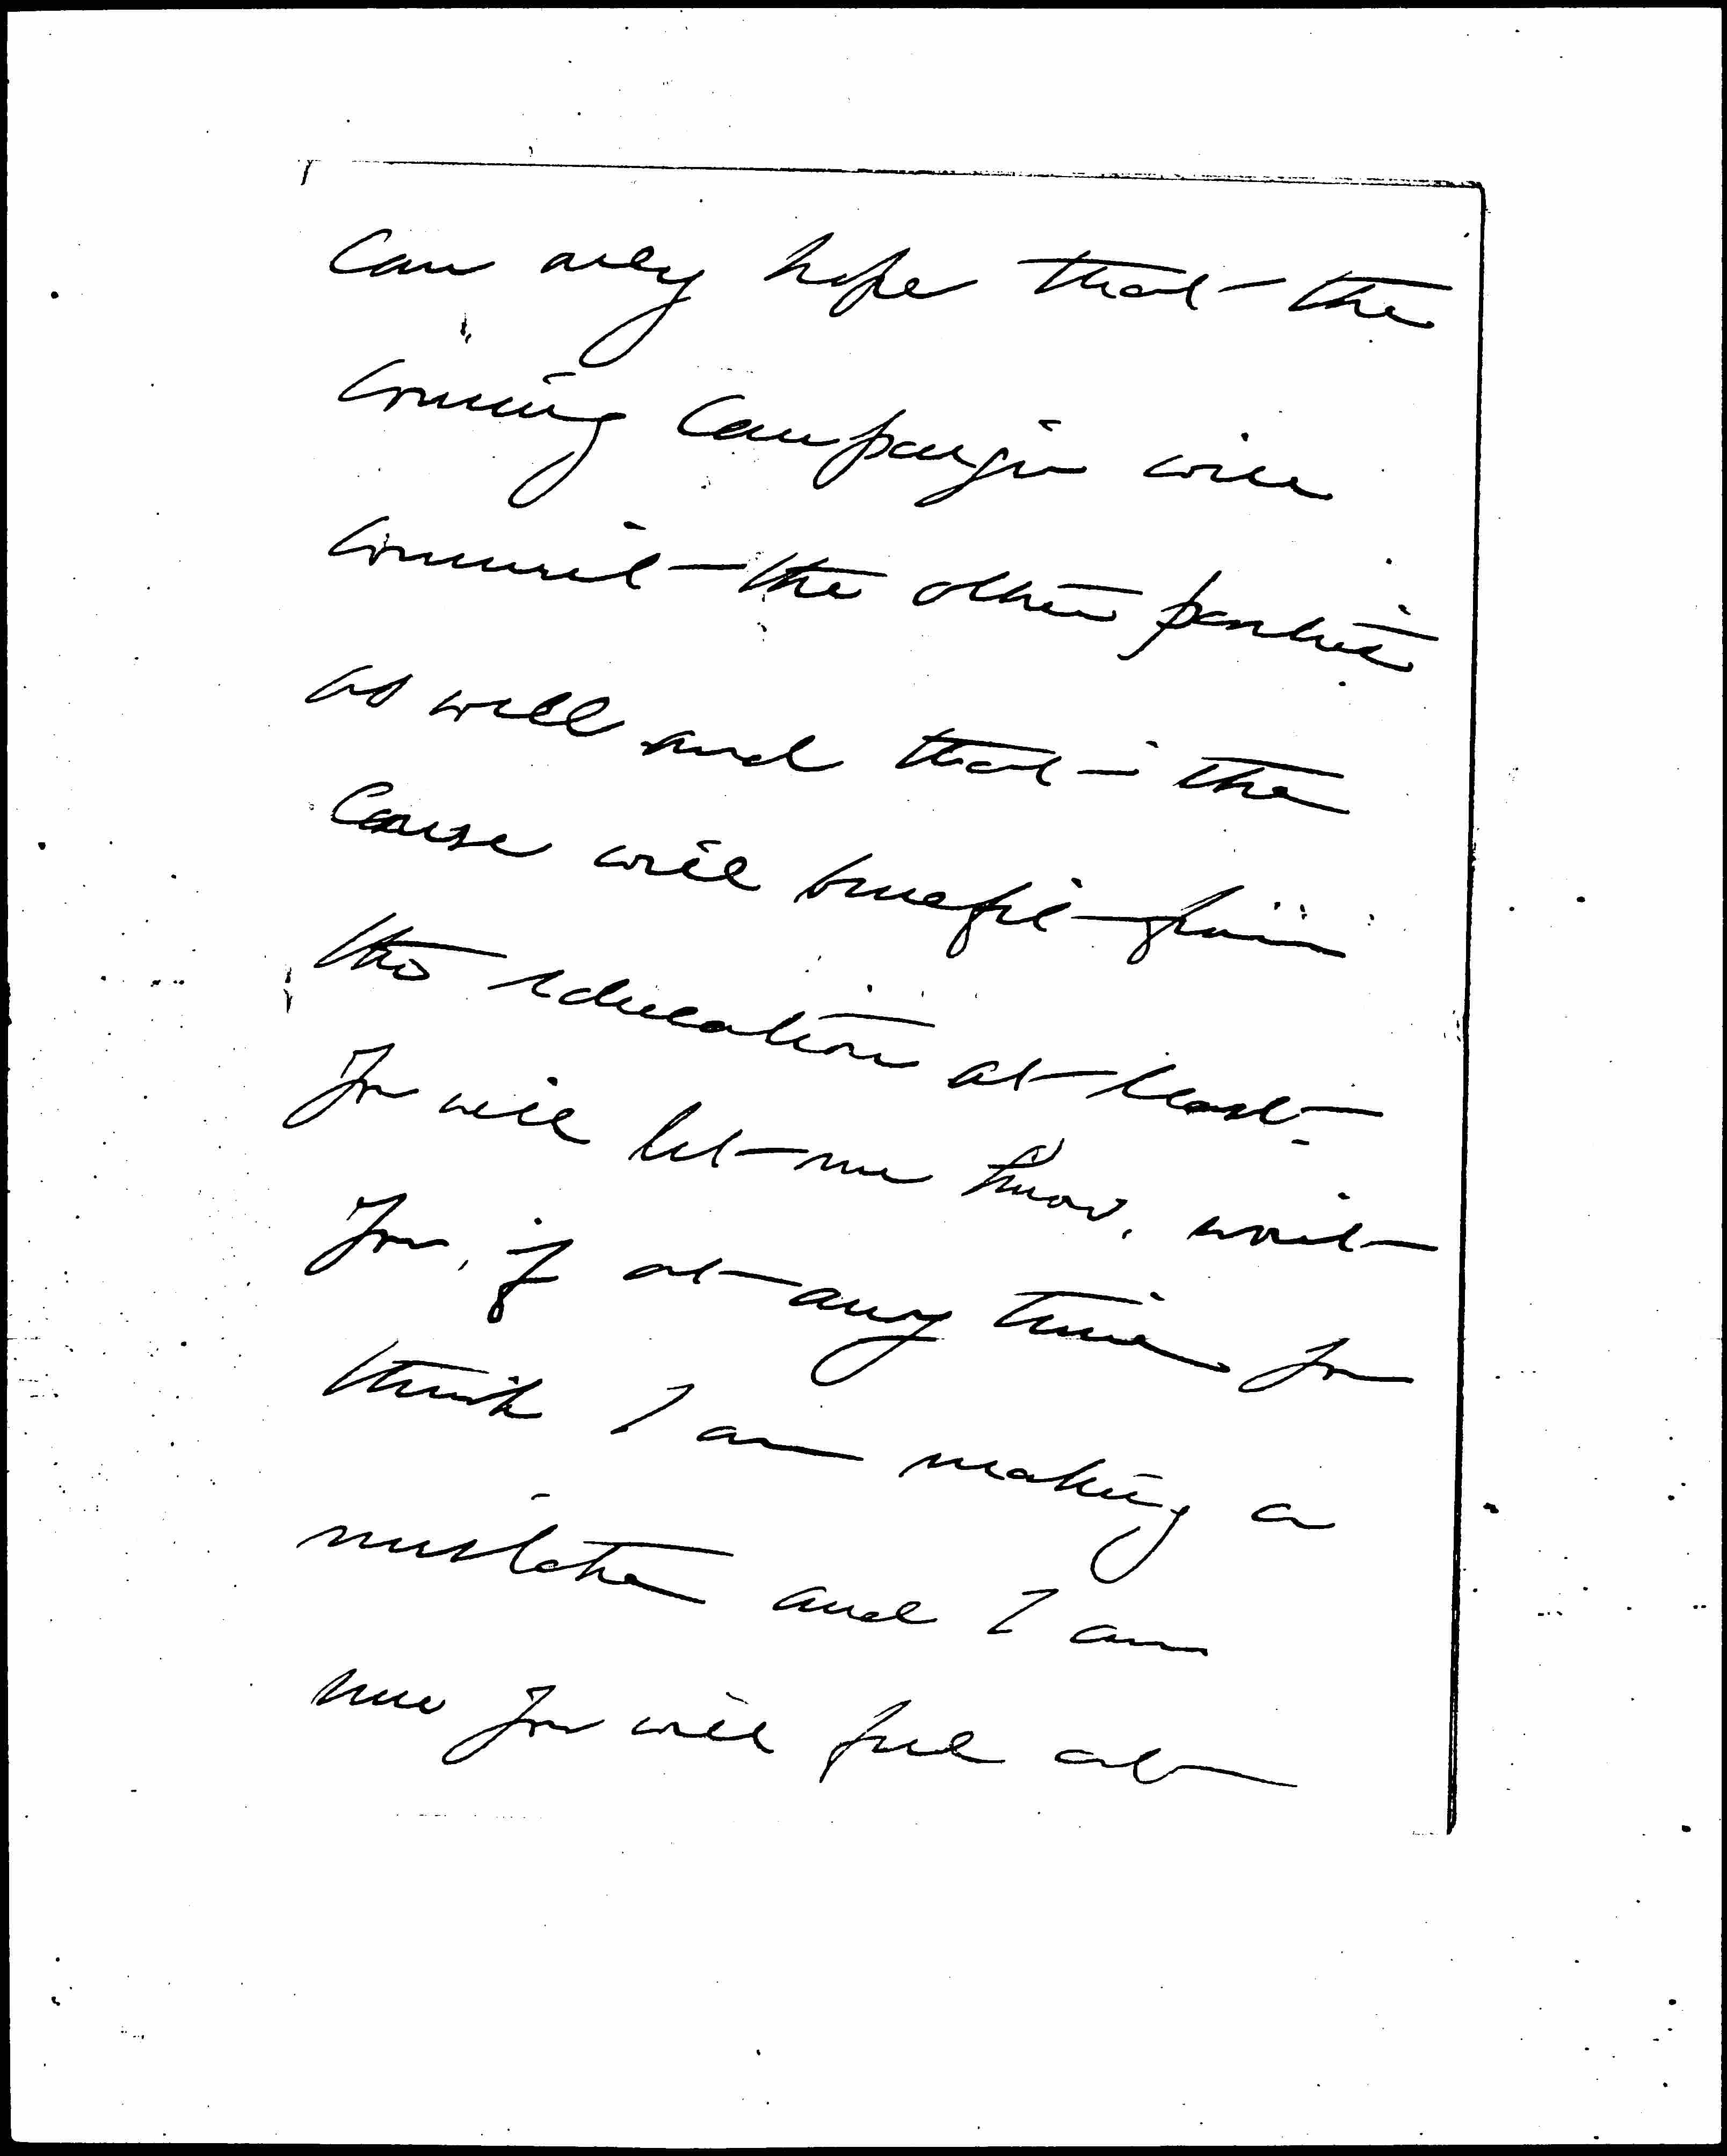 can only hope that the
coming campaign will
commit the other parties
as well and that the
cause will benefit from
the education at least.
You will let me know, won't
you, if at any time you
think I am making a
mistake and I am
sure you will feel at